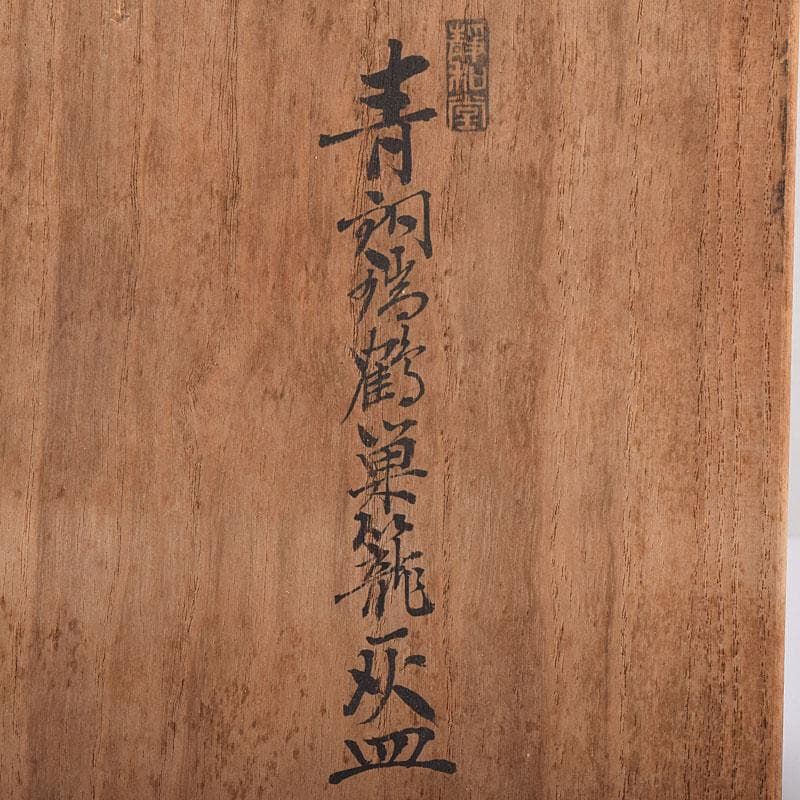 靜和堂
青銅瑞鶴巣籠灰皿